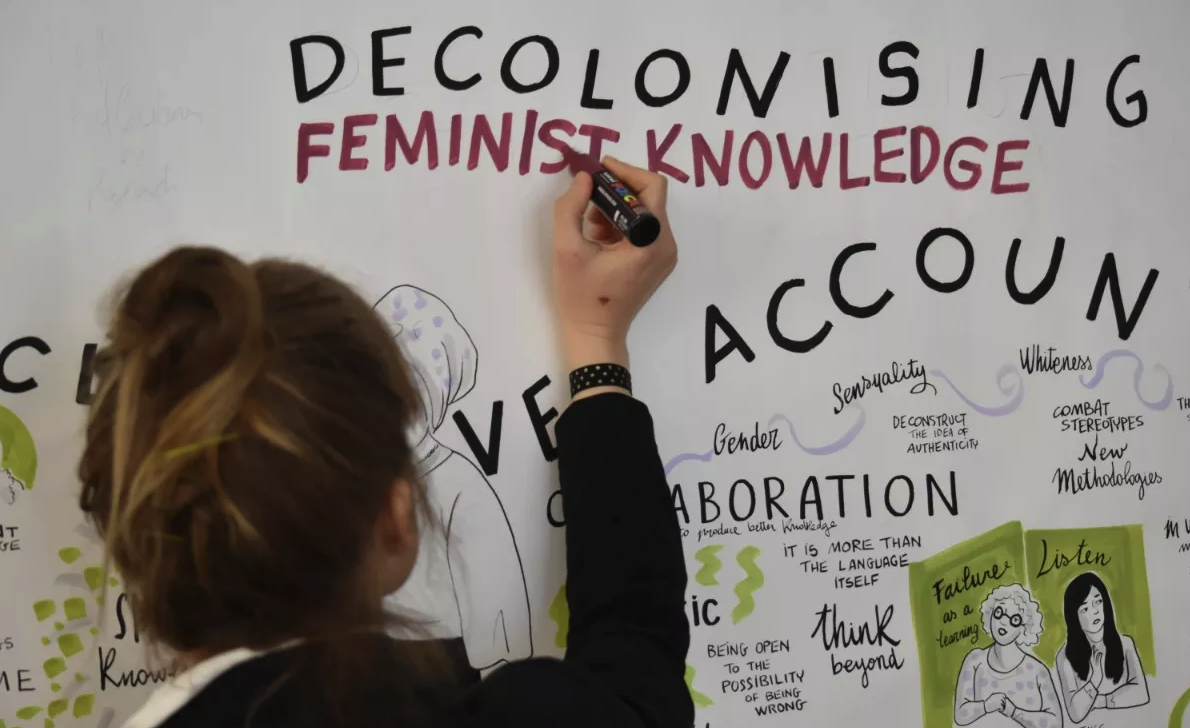 DECOLONISING
FEMINIST KNOWLEDGE
ACCOUN
VE
Sensuality
Whiteness
Gender
DECONSTRUCT
THE IDEA OF
AUTHENTICITY
COMBAT
STEREOTYPES
New
Methodologies
ABORATION
to produce better knowledge
IT IS MORE THAN
THE LANGUAGE
ITSELF
think
beyond
BEING OPEN
TO THE
POSSIBILITY
OF BEING
WRONG
Failure
as a
learning
Listen
Know
POSCA